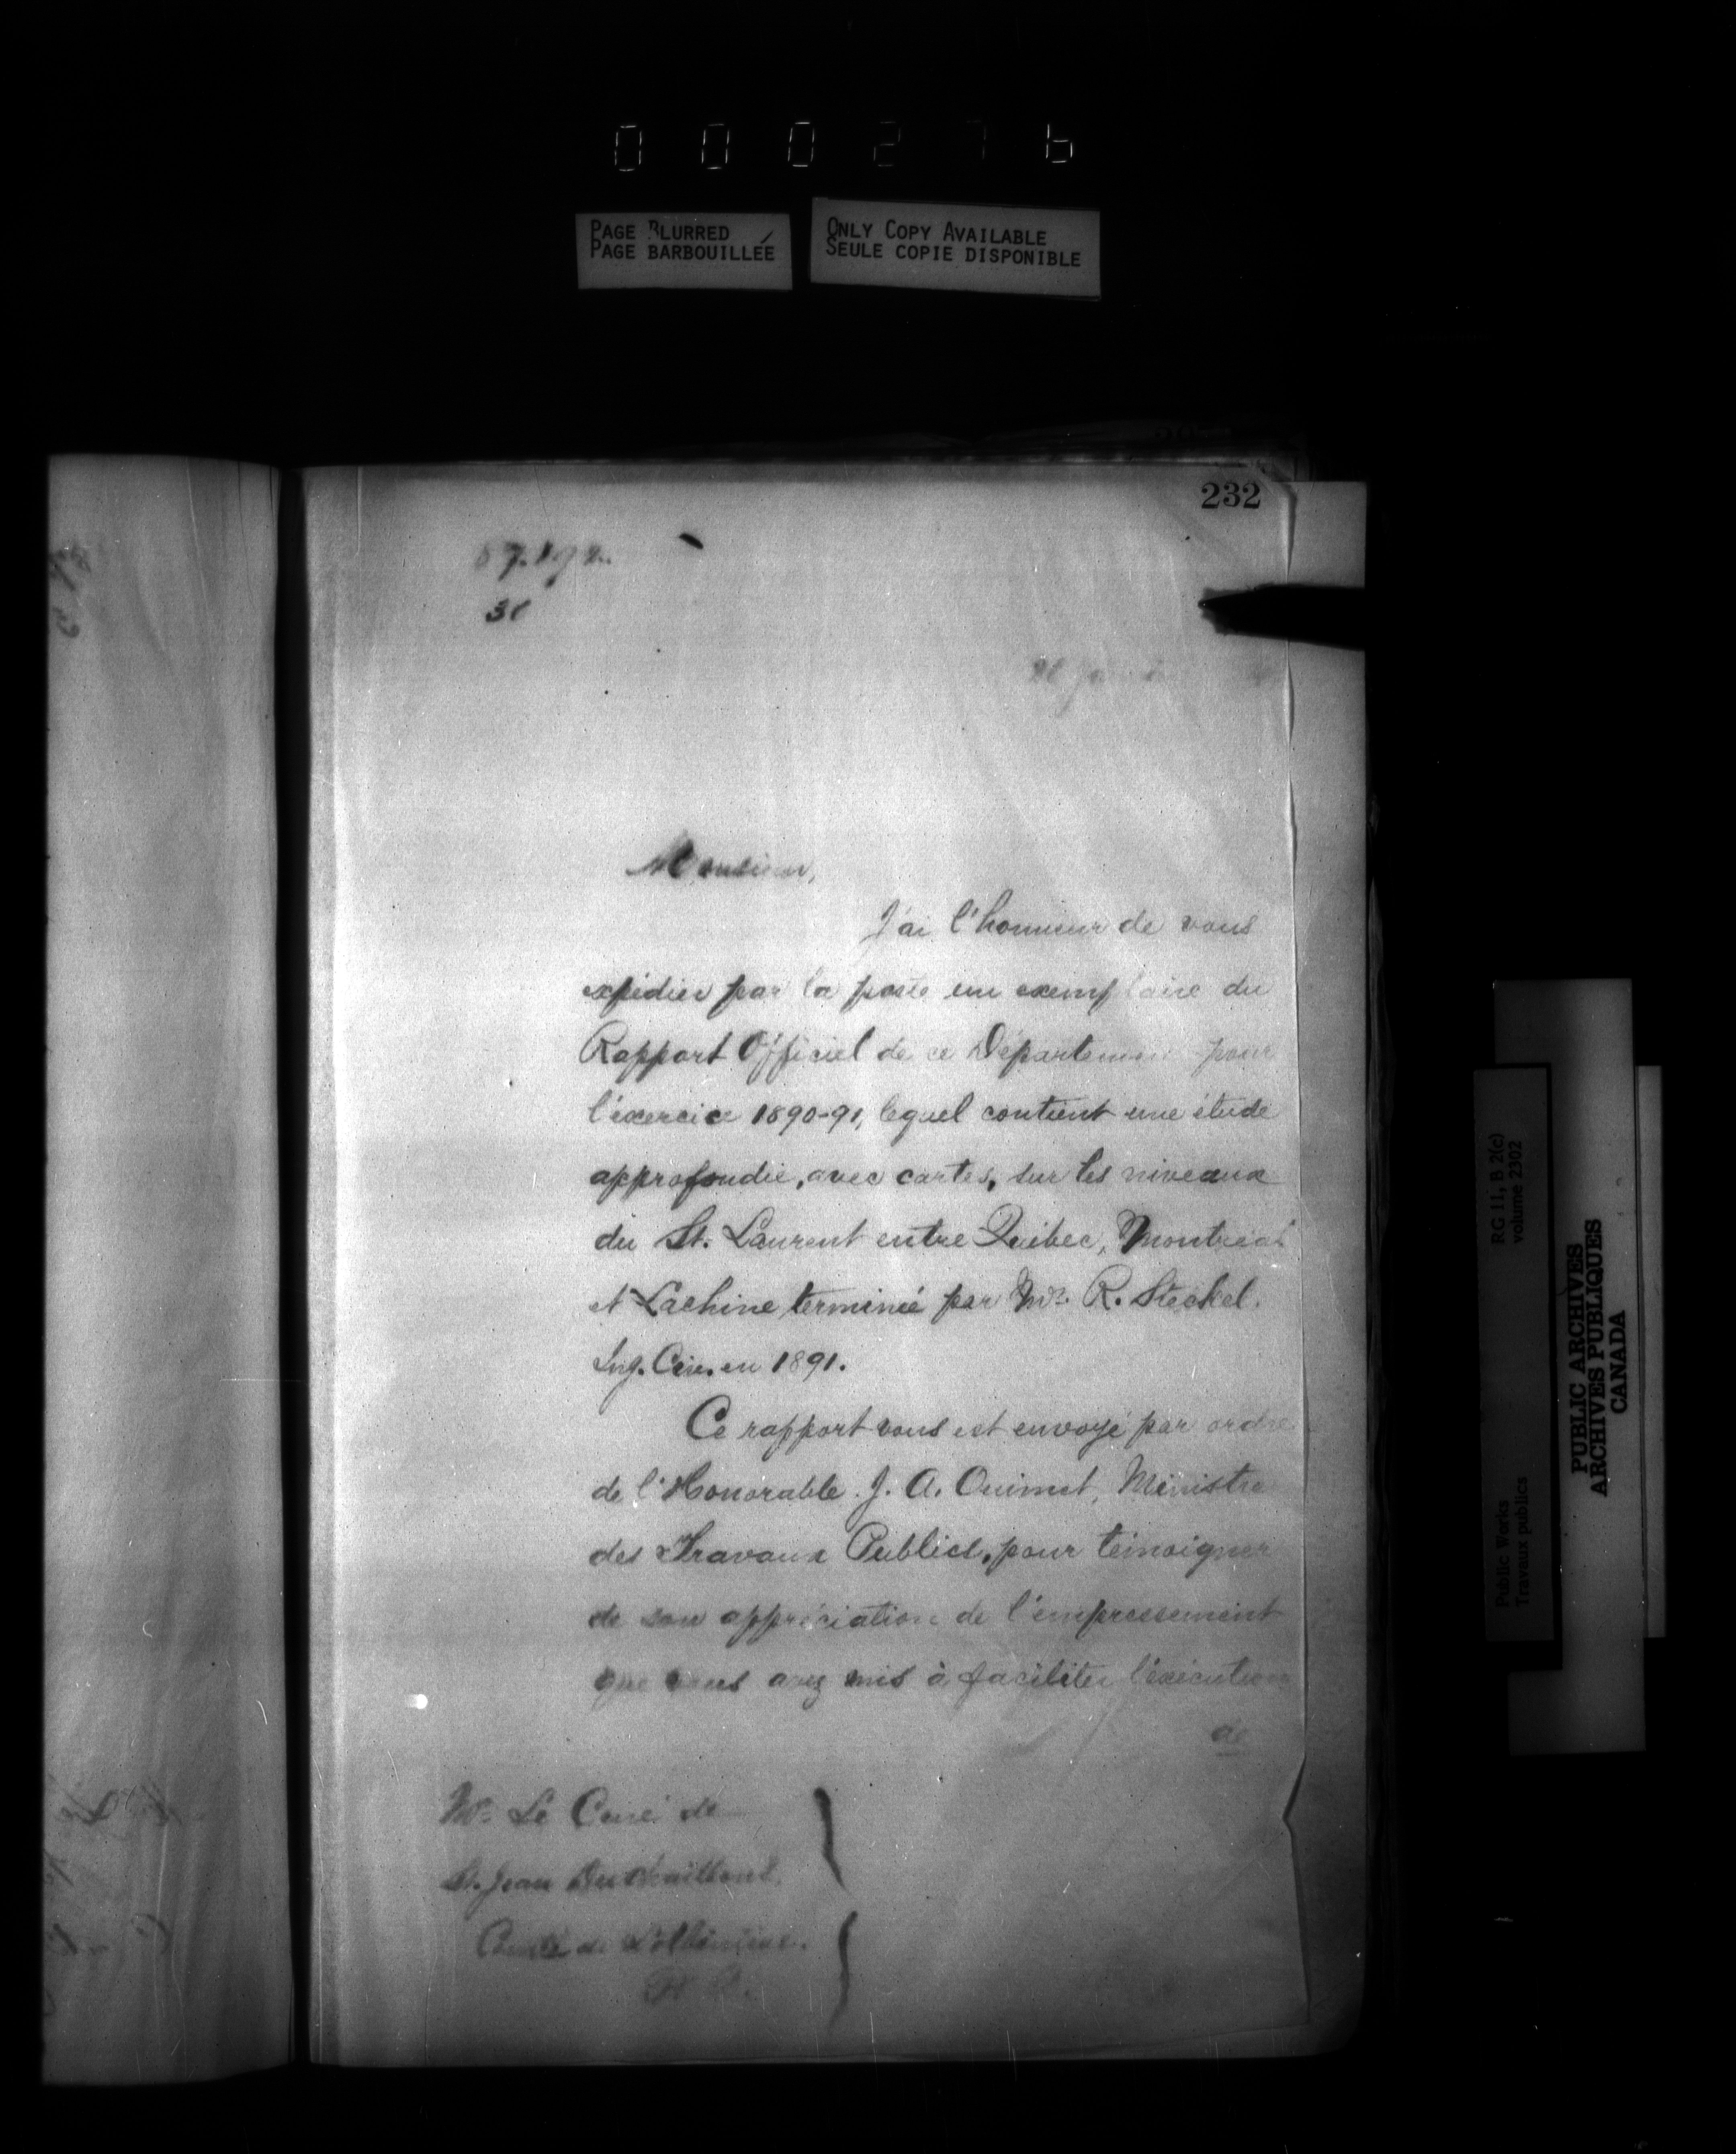 000276
PAGE BLURRED
PAGE BARBOUILLÉE
ONLY COPY AVAILABLE
SEULE COPIE DISPONIBLE
232
31
Monsieur,
J'ai l'honneur de vous
expédier par la poste un exemplaire du
Rapport Officiel de ce Département pour
l'exercice 1890-91, lequel contient une étude
approfondie, avec cartes, sur les niveaux
du St. Laurent entre Québec, Montréal
et Lachine terminé par Mr. R. Steckel.
Ing. Civ. en 1891.
Ce rapport vous est envoyé par ordre
de l'Honorable J. A. Ouimet, Ministre
des Travaux Publics, pour témoigner
de son appréciation de l'empressement
que vous avez mis à faciliter l'exécution
de
Mr. Le Curé de
St. Jean Deschaillons
Comté de Lotbinière.
P. Q.
RG 11, B 2(c)
volume 2302
Public Works
Travaux publics
PUBLIC ARCHIVES
ARCHIVES PUBLIQUES
CANADA